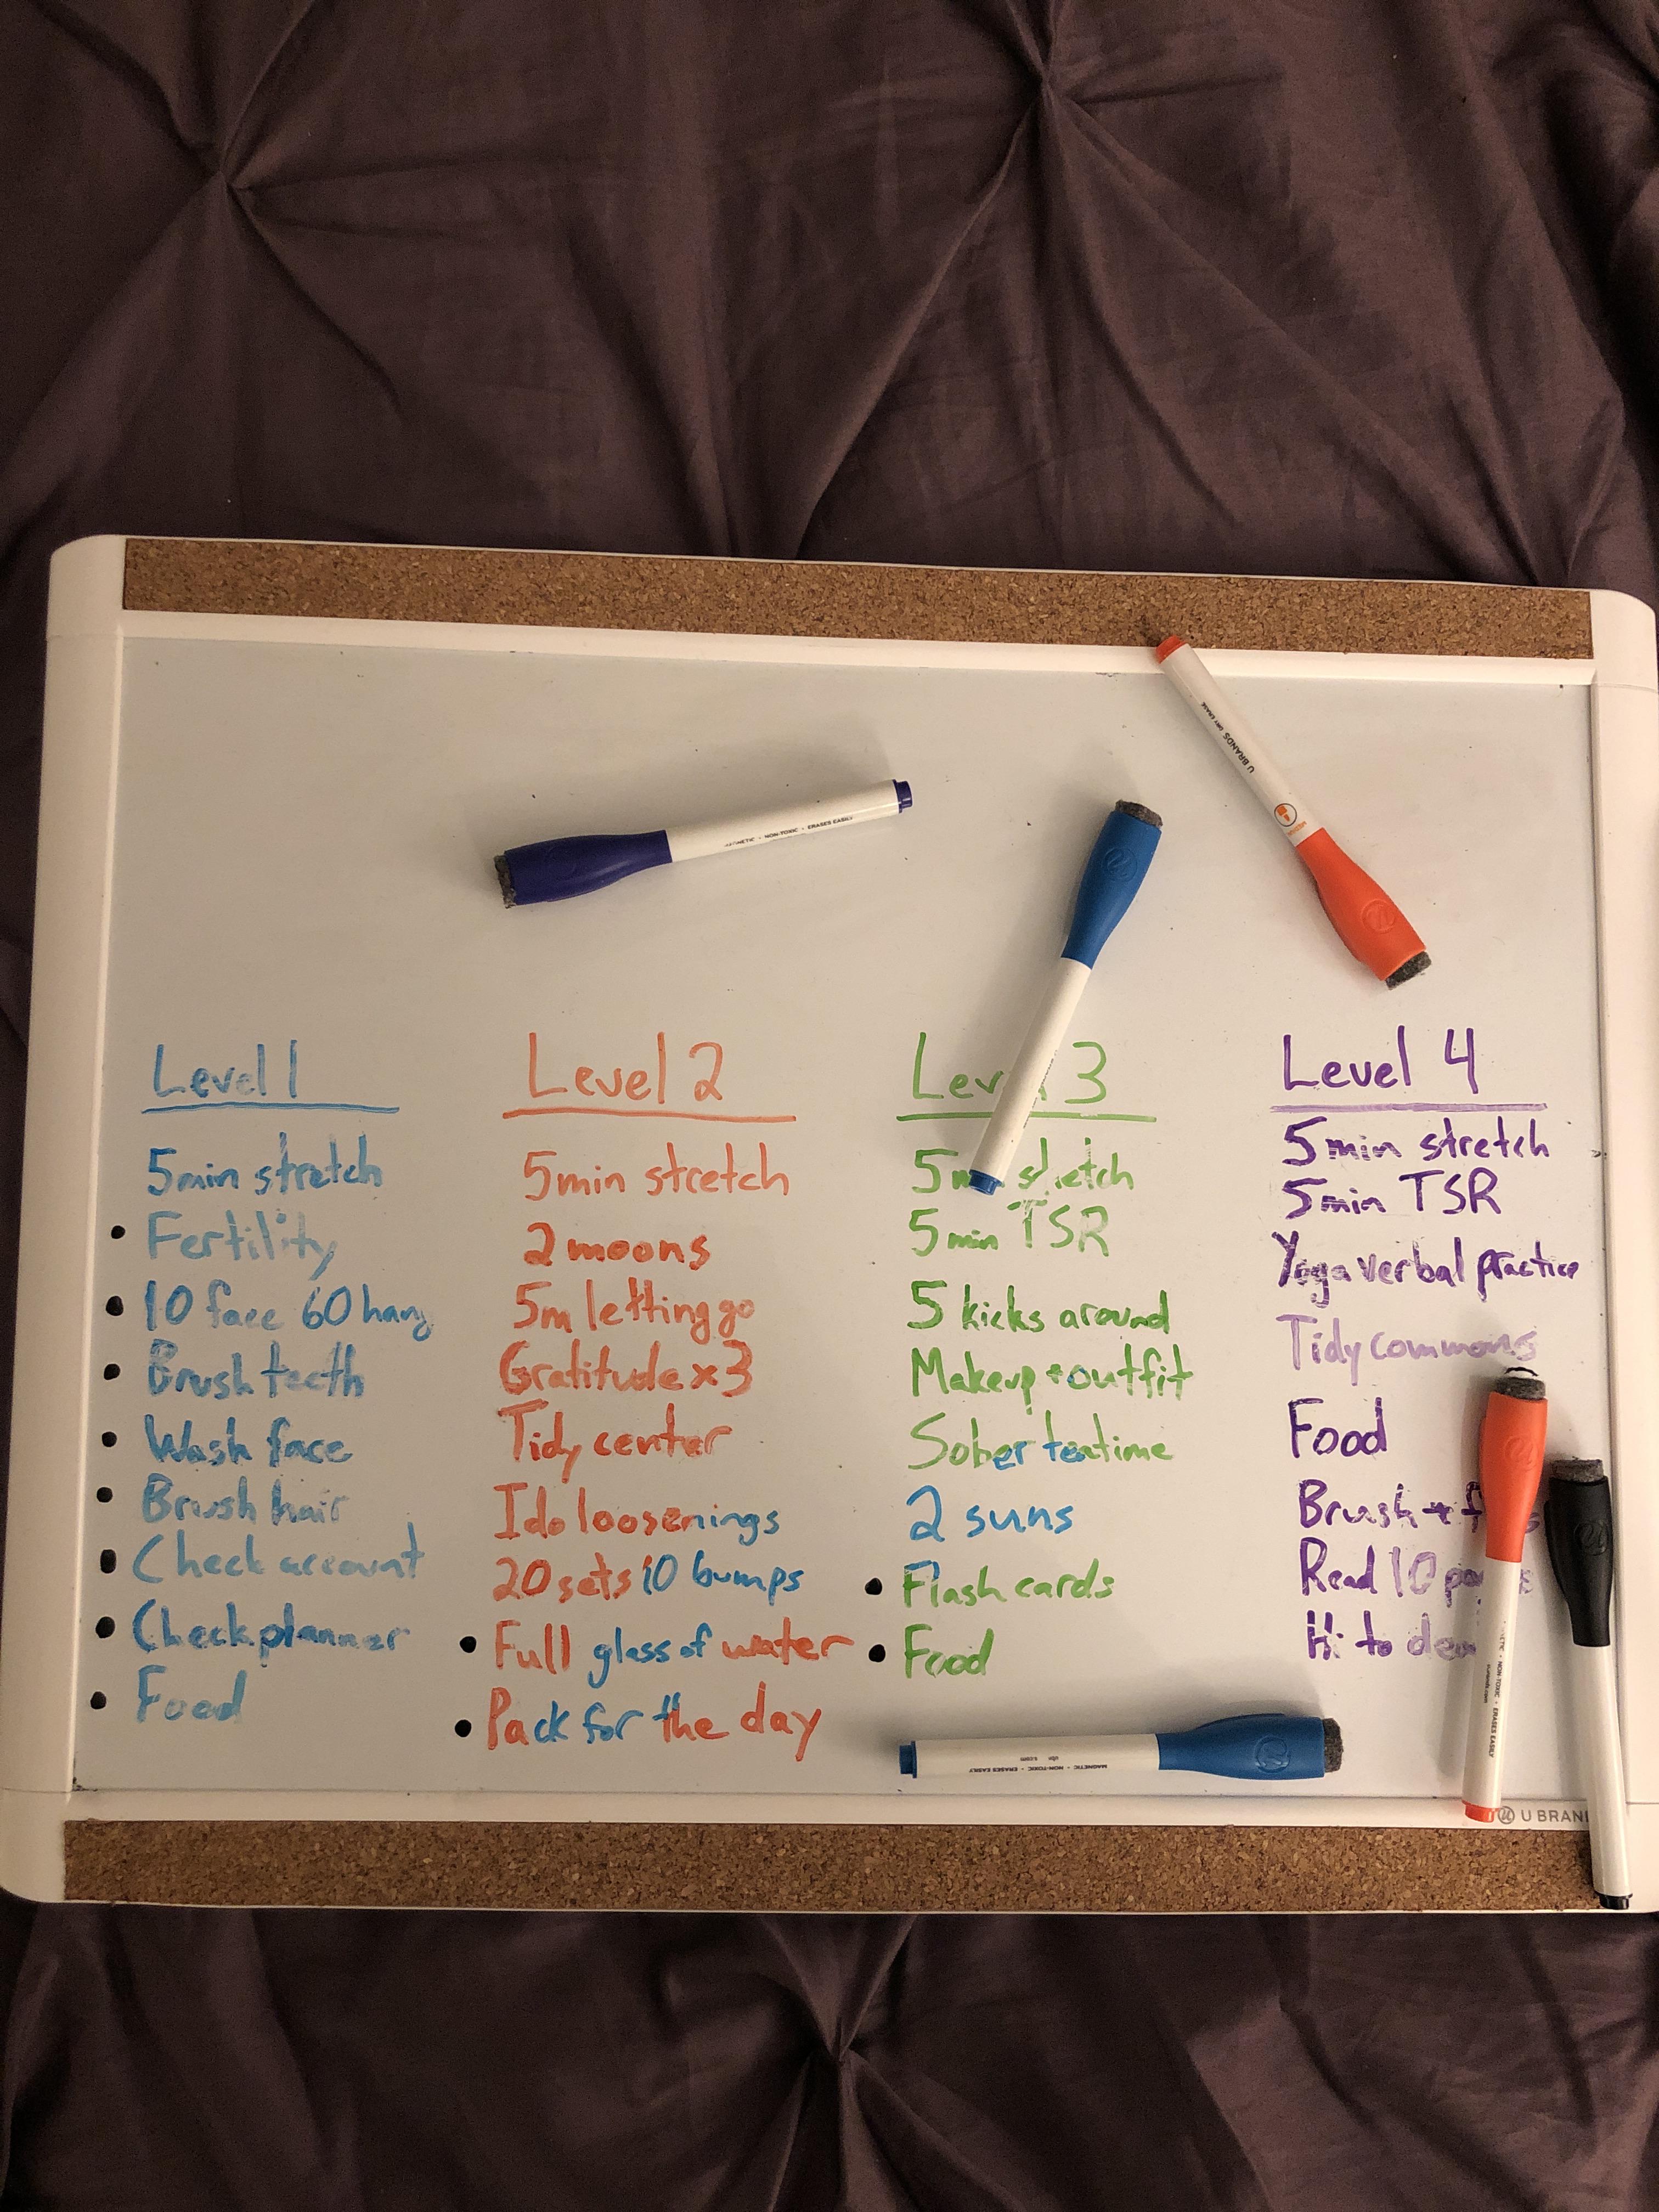 U BRANDS DRY ERASE
NON-TOXIC • ERASES EASILY
Level 1
5min stretch
• Fertility
• 10 face 60 hang
• Brush teeth
• Wash face
• Brush hair
• Check account
• Check planner
• Food
Level 2
5min stretch
2 moons
5m letting go
Gratitude x3
Tidy center
Ido loosenings
20 sets 10 bumps
• Full glass of water
• Pack for the day
3
5
5 min TSR
5 kicks around
Makeup + outfit
Sober teatime
2 suns
• Flash cards
• Food
Level 4
5min stretch
5min TSR
Yoga verbal practice
Tidy commons
Food
Brush +
Read 10
Hi to
MAGNETIC • NON-TOXIC • ERASES EASILY
NON-TOXIC • ERASES EASILY
U